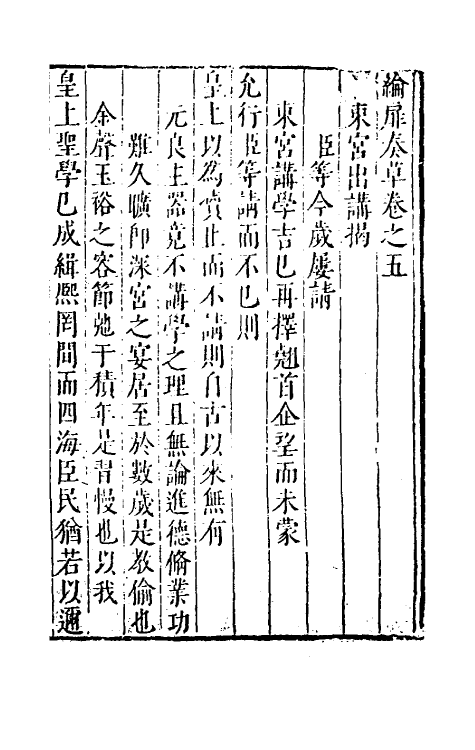 綸扉奏草卷之五
東宮出講揭
臣等今歲屢請
東宮講學吉已再擇翹首企望而未蒙
允行臣等請而不已則
皇上以為瀆止而不請則自古以來無有
元良主器竟不講學之理且無論進德脩業功
難久曠即深宮之宴居至於數歲是教偷也
金聲玉裕之容節弛于積年是習慢也以我
皇上聖學已成緝熈罔間而四海臣民猶若以邇